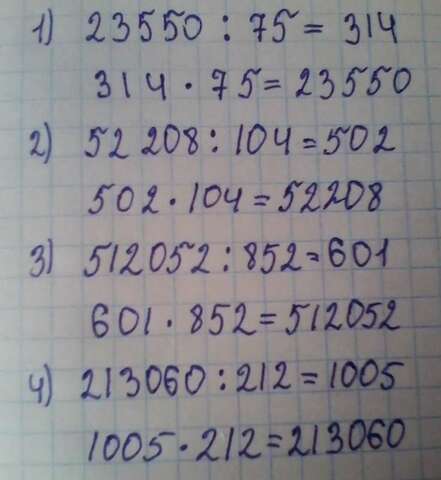 1) 23550 : 75 = 314
314 · 75 = 23550
2) 52 208 : 104 = 502
502 · 104 = 52208
3) 512052 : 852 = 601
601 · 852 = 512052
4) 213060 : 212 = 1005
1005 · 212 = 213060